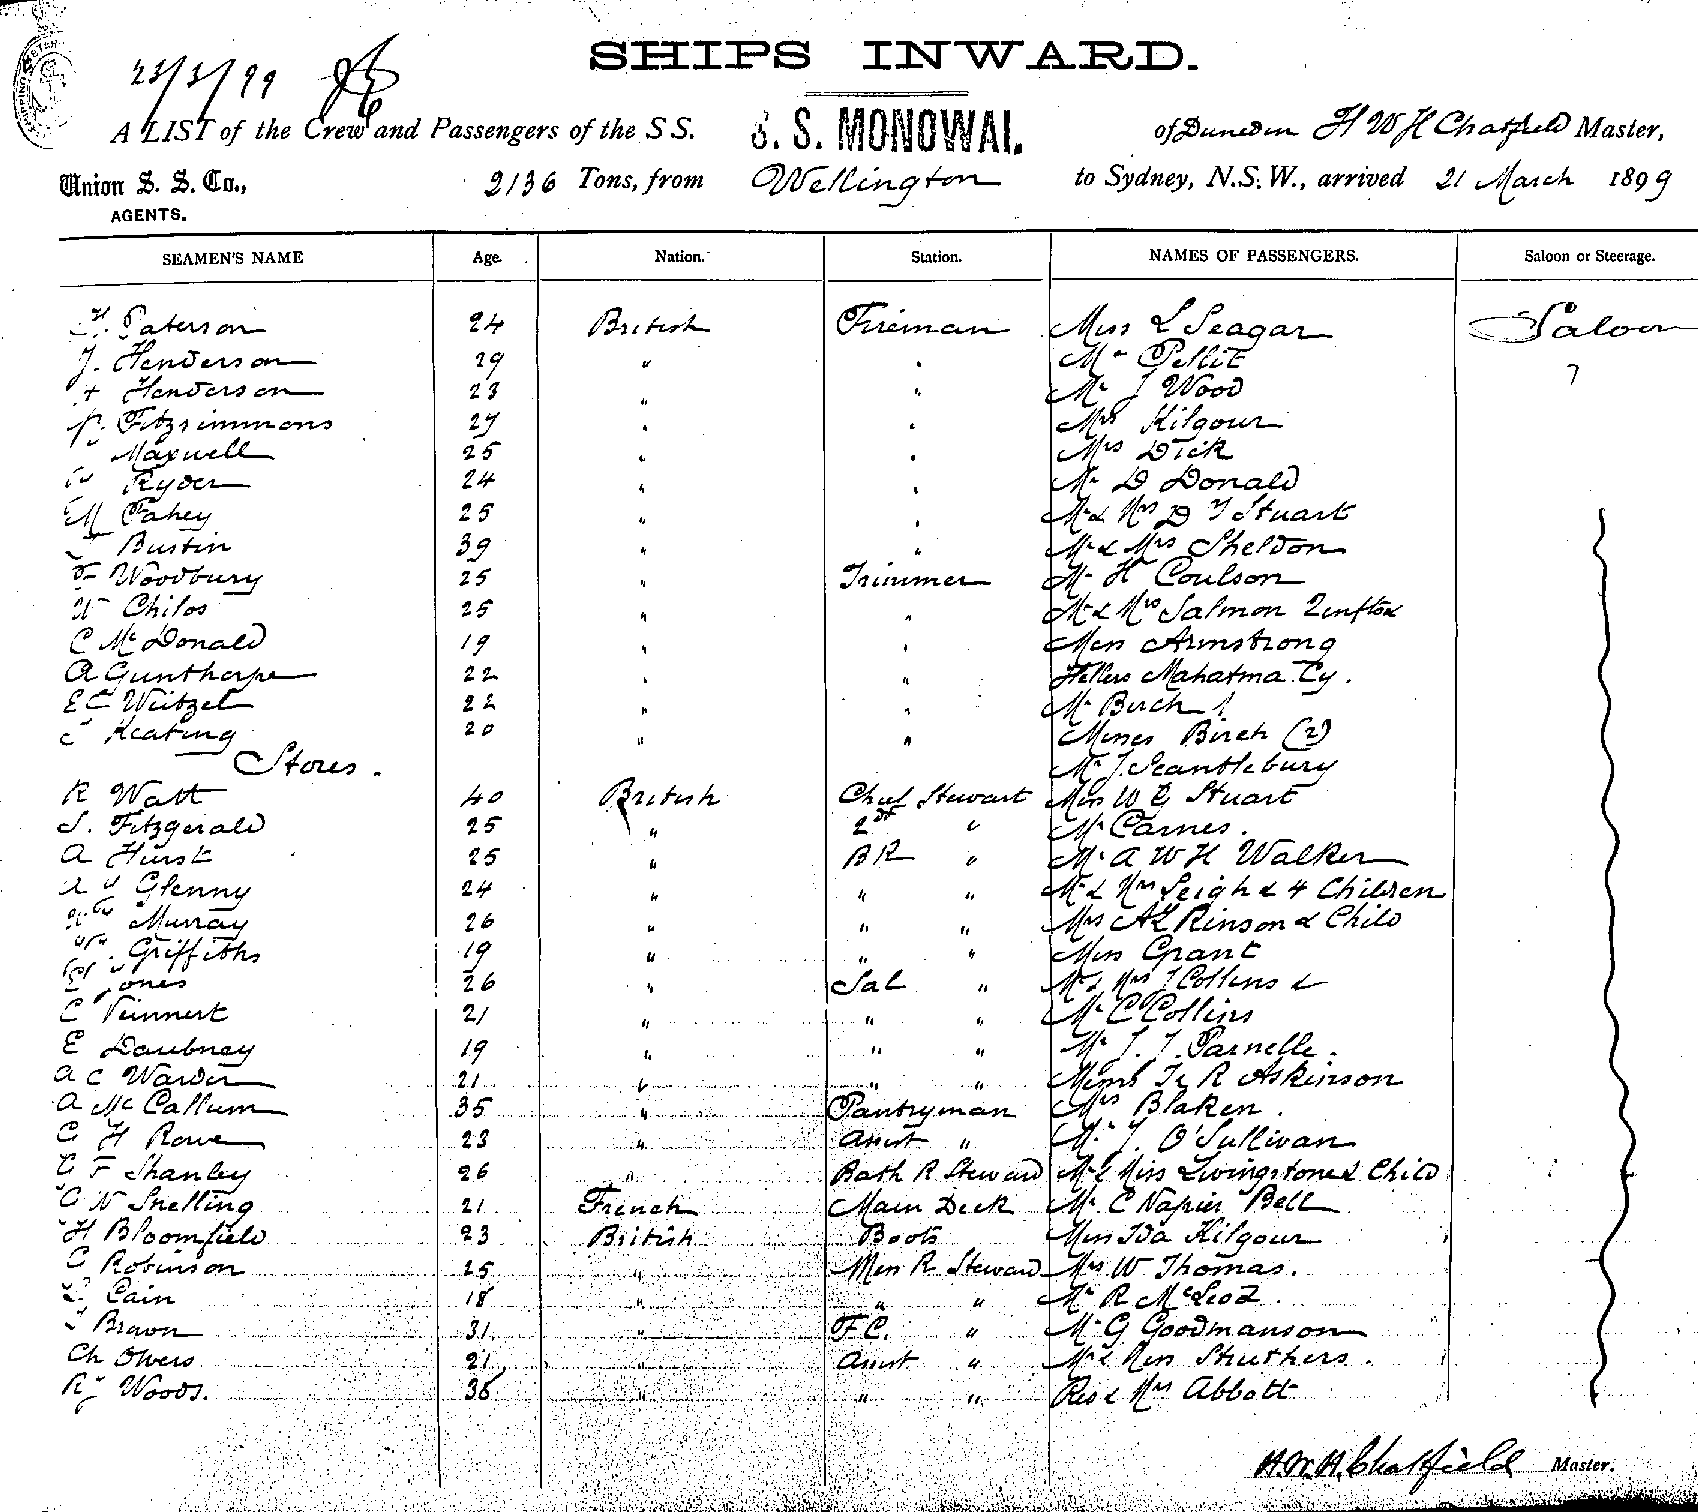 SHIPS INWARD.
23/3/99
A LIST of the Crew and Passengers of the S S. S. S. MONOWAI. of Dunedin H W H Chatfield Master,
Union S. S. Co., 2136 Tons, from Wellington to Sydney, N.S.W., arrived 21 March 1899
AGENTS.
SEAMEN'S NAME Age. Nation. Station. NAMES OF PASSENGERS. Saloon or Steerage.
H. Paterson 24 British Fireman Miss L Seagar Saloon
J. Henderson 29 " " Mr Pellit
Henderson 23 " " Mr J Wood
P. Fitzsimmons 27 " " Mrs Kilgour
Maxwell 25 " " Mrs Dick
Ryder 24 " " Mr D Donald
M Fahey 25 " " Mr & Mrs D J Stuart
J Bustin 39 " " Mr & Mrs Sheldon
F Woodbury 25 " Trimmer Mr H Coulson
W Chilos 25 " " Mr & Mrs Salmon
C McDonald 19 " " Miss Armstrong
A Gunthorpe 22 " " Mahatma Cy.
E C Weitzel 22 " " Mr Birch
J Keating 20 " " Misses Birch (2)
Stores. Mr J. Scantlebury
R Watt 40 British Chief Stewart Miss W G Stuart
S. Fitzgerald 25 " 2nd " Mr Carnes.
A Hurst 25 " B R " Mr A W H Walker
A Glenny 24 " " " Mr & Mrs Leigh & 4 Children
Murray 26 " " " Mrs Rinson & Child
Griffiths 19 " " " Miss Grant
Jones 26 " Sal " Mr & Mrs J Collins &
C Vennert 21 " " " Mr C Collins
E Daubney 19 " " " Mr J. J. Parnelle.
A C Warden 21 " " " R Askinson
A McCallum 35 " Pantryman Mrs Blaken.
C H Rowe 23 " Assist " Mr J. O'Sullivan
C F Shanley 26 " Bath R Steward Mr & Miss Livingstone & Child
C N Snelling 21 French Main Deck Mr C Napier Bell
H Bloomfield 23 British Boots Miss Ida Kilgour
C Robinson 25 " Men R Steward Mrs W Thomas.
Cain 18 " " " Mr R McLeod
J Brown 31 " F.C. " Mr G Goodmanson
Ch Olvers 21 " Assist " Mr & Miss Struthers.
Ry Woods. 36 " " " Rev & Mrs Abbott
H. W. H. Chatfield Master.